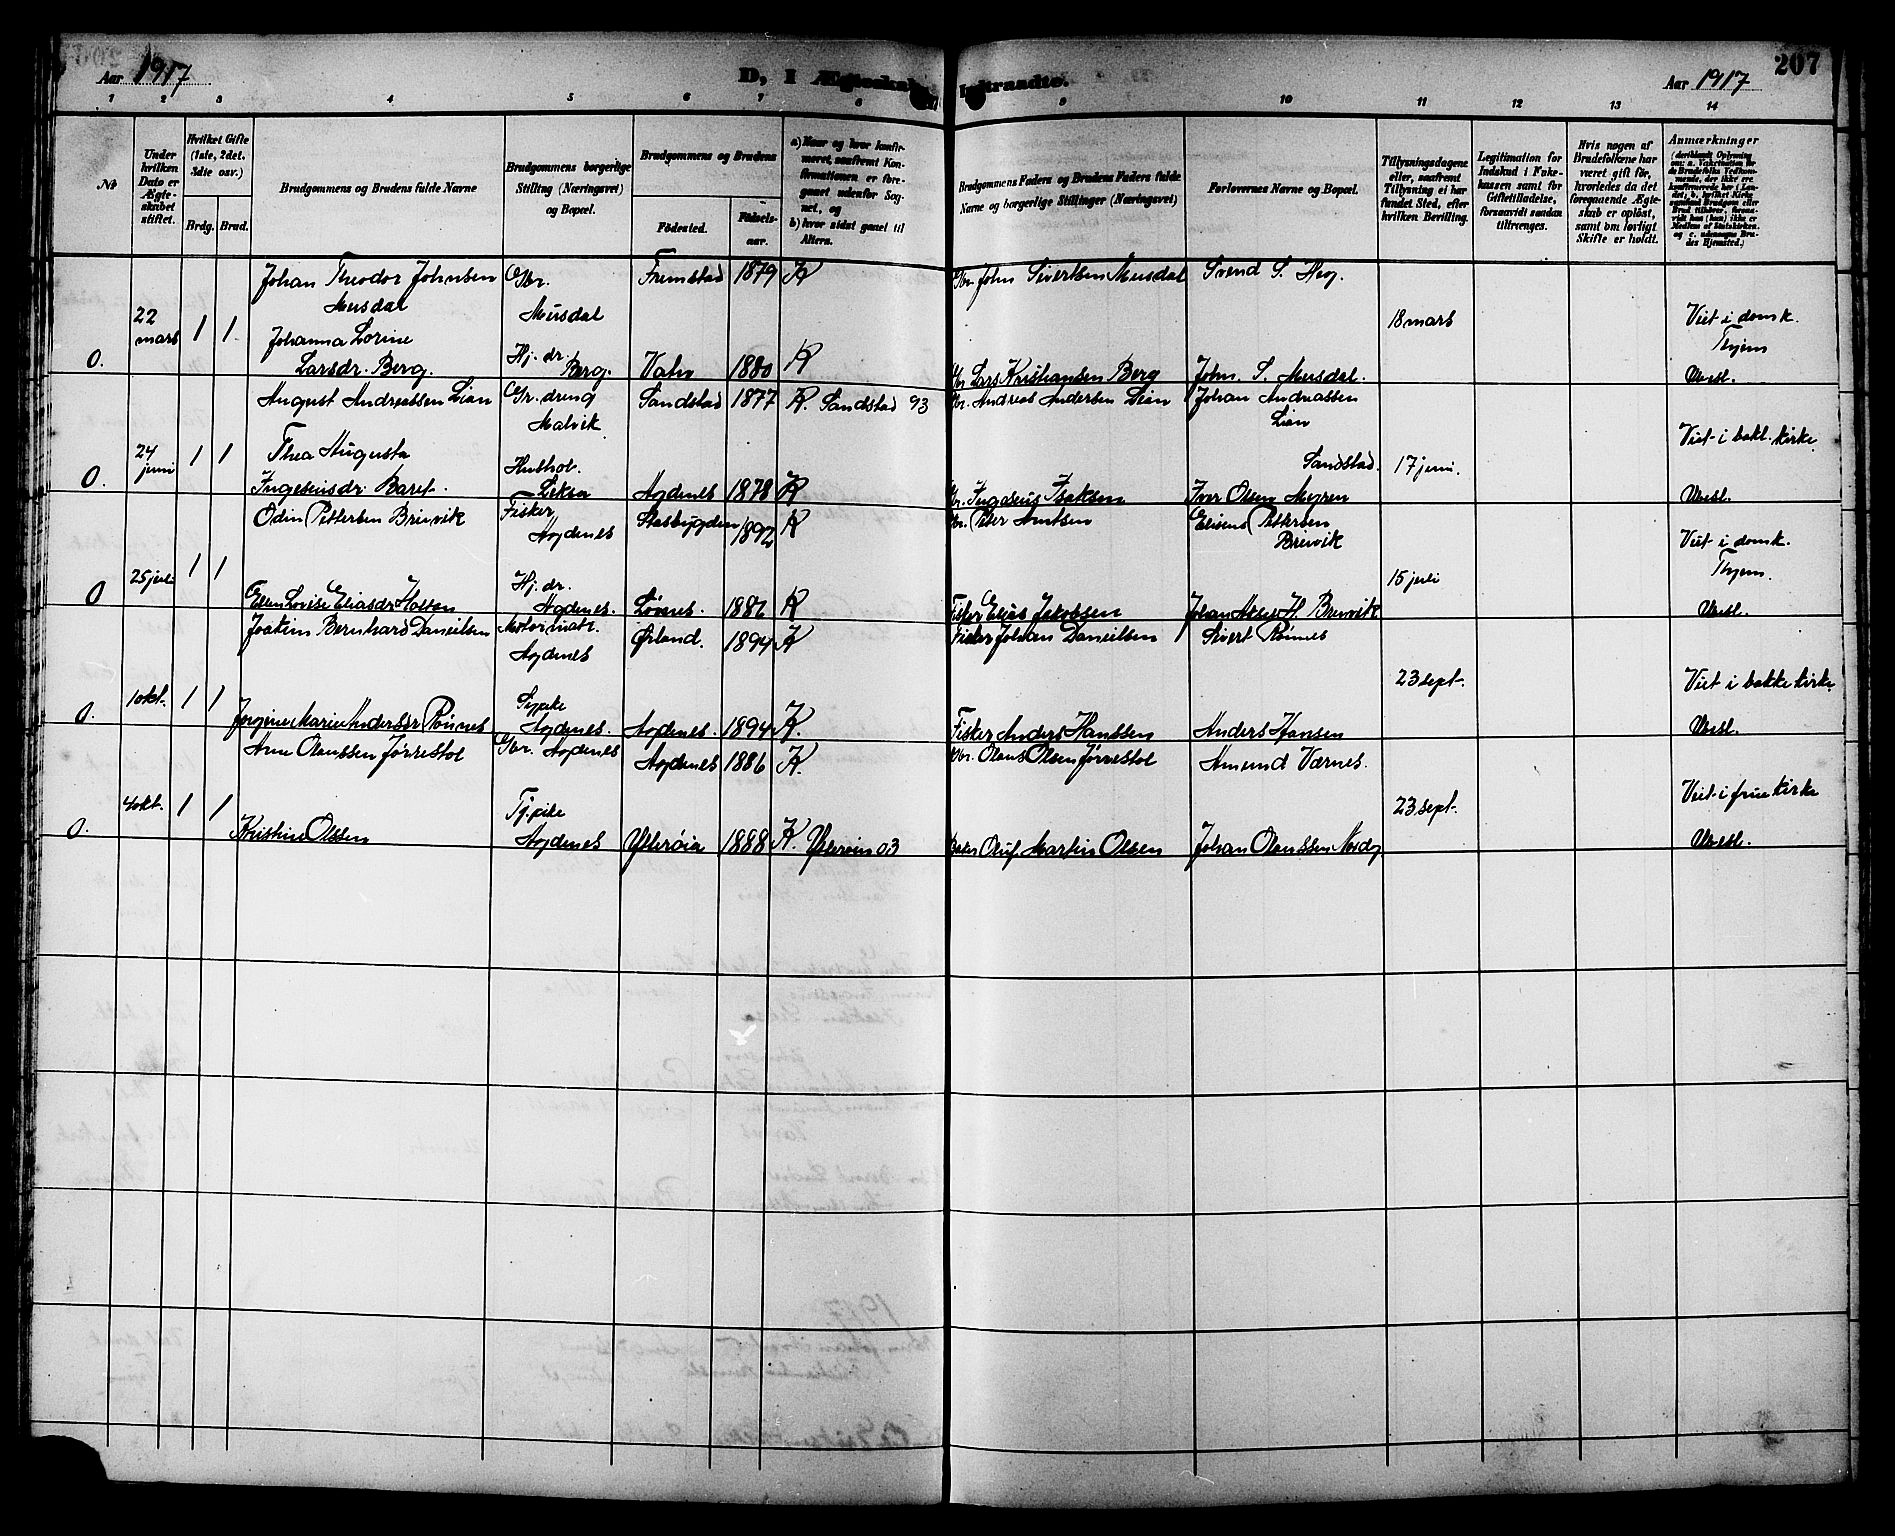 207
Aar 1917
D, I Ægteskab Indtraadte.
Aar 1917
1 2 3 4 5 6 7 8 9 10 11 12 13 14
№
Under hvilken Dato er Ægteskabet stiftet.
Hvilket Gifte (1ste, 2det, 3die osv.)
Brdg. Brud.
Brudgommens og Brudens fulde Navne
Brudgommens borgerlige Stilling (Næringsvei) og Bopæl.
Brudgommens og Brudens
Fødested.
Fødselsaar.
a) Naar og hvor konfirmeret, saafremt Konfirmationen er foregaaet udenfor Sognet, og
b) hvor sidst gaaet til Alters.
Brudgommens Faders og Brudens Faders fulde Navne og borgerlige Stillinger (Næringsvei)
Forlovernes Navne og Bopæl.
Tillysningsdagene eller, saafremt Tillysning ei har fundet Sted, efter hvilken Bevilling.
Legitimation for Indskud i Enkekassen samt for Giftetilladelse, forsaavidt saadan tiltrænges.
Hvis nogen af Brudefolkene har været gift før, hvorledes da det foregaaende Ægteskab er opløst, samt om lovligt Skifte er holdt.
Anmærkninger
Johan Theodor Johnsen Gbr. Fremstad 1879 K Gbr. John Sivertsen Musdal Svend S. Hog.
Musdal Musdal
22 mars 1 1 18 mars Viet i domk.
Johanna Lorine Thjem
O. Larsdr. Berg. Hj. dr. Berg. Vatn 1880 K Gbr. Lars Kristiansen Berg John S. Musdal. Ubesl.
August Andreassen Lian Gr. dreng Sandstad 1877 K. Sandstad 93 Gbr. Andreas Andersen Lian Johan Andreassen
Malvik Lian
24 juni 1 1 Thea Augusta Sandstad. 17 juni. Viet i bakl. kirke
O. Ingebrigtsdr. Baret. Hushol. Leksa Agdenes 1878 K Isaksen Iver Olsen Myren Ubesl.
Odin Pettersen Brevik Fisker Stadsbygden 1892 K Gbr. Peter Arntsen Elisens Pettersen
Agdenes Brevik
25 juli 1 1 15 juli Viet i domk.
Hj. dr. Thjem.
O Ellen Lovise Eliasdr Holten Agdenes. 1886 K Fisker Elias Jakobsen Johan H. Brevik Ubesl.
Joakim Bernhard Daneilsen Agdenes Ørland. 1894 K Fisker Johan Daneilsen Sivert Rönnes
1 okt. 1 1 23 sept. Viet i bakke kirke
O. Jørgine Marie Andersdr Rönnes Agdenes. Agdenes. 1894 K. Fisker Anders Hanssen Anders Hansen Ubesl.
Arne Olaussen Jørrestol Gbr. Agdenes Agdenes 1886 K. Gbr. Olaus Olsen Jørrestol Amund Værnes.
4 okt. 1 1 Tj. pike 23 sept. Viet i frue kirke
O. Kristine Olssen Agdenes Ytterøia 1888 K. Ytterøien 03 Oluf Martin Olsen Johan Olaussen Ubesl.